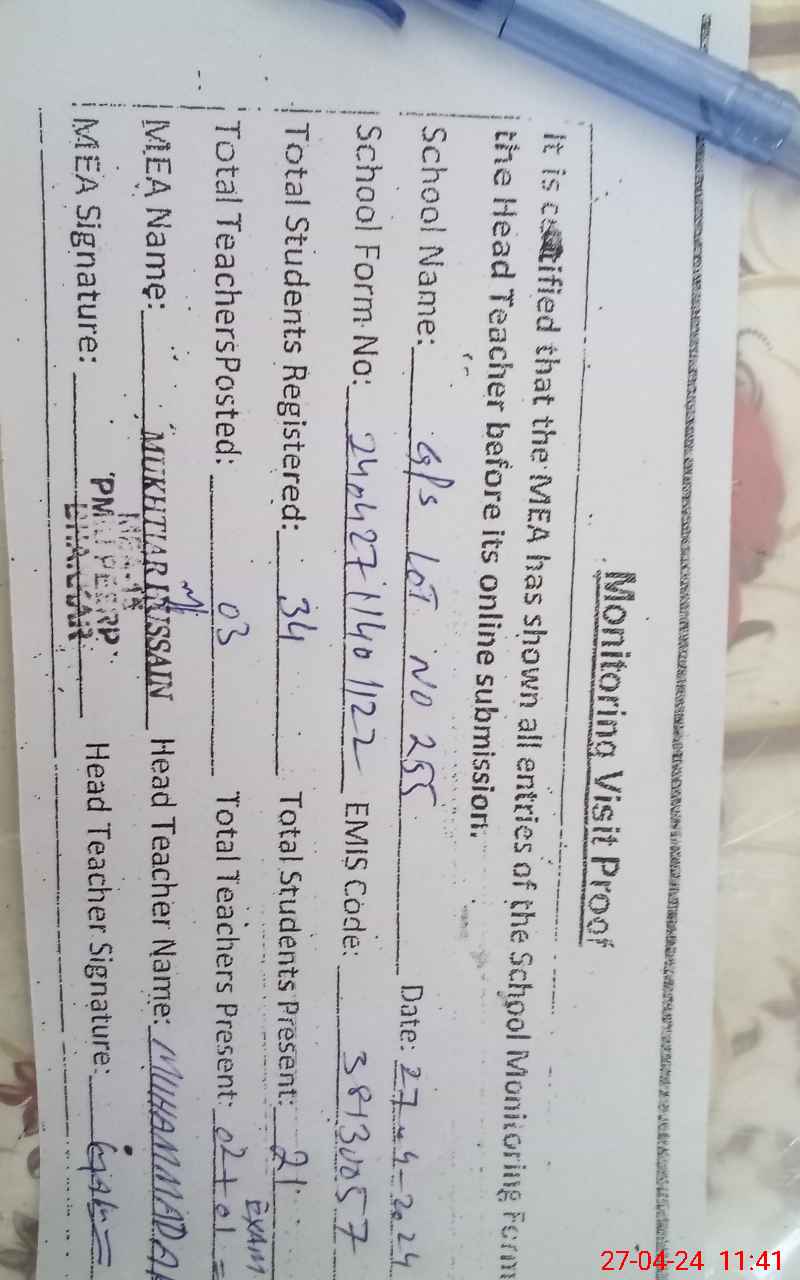 Monitoring Visit Proof
It is certified that the MEA has shown all entries of the School Monitoring Form
the Head Teacher before its online submission.
School Name: G/S LOT NO 255 Date: 27-4-2024
School Form No: 2404271140 1122 EMIS Code: 38130057
Total Students Registered: 34 Total Students Present: 21
EXAM
Total TeachersPosted: 03 Total Teachers Present: 02+01=
MEA Name: MUKHTIAR HUSSAIN Head Teacher Name: MUHAMMAD
MEA Signature: Head Teacher Signature:
27-04-24 11:41